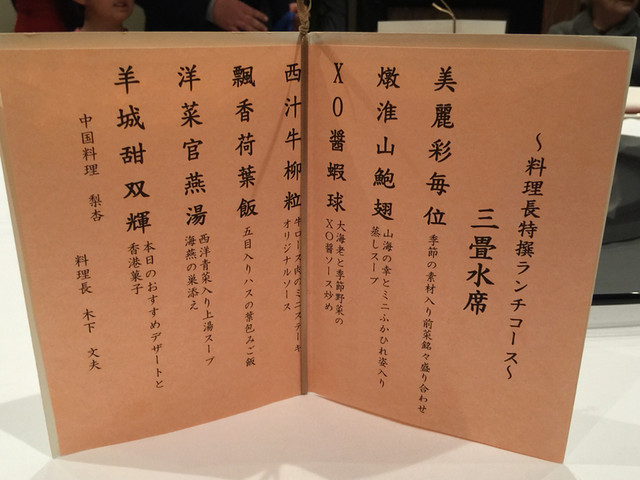 ～料理長特撰ランチコース～
三畳水席
美麗彩毎位
季節の素材入り前菜銘々盛り合わせ
燉淮山鮑翅
山海の幸とミニふかひれ姿入り
蒸しスープ
XO醬蝦球
大海老と季節野菜の
XO醬ソース炒め
西汁牛柳粒
牛ロース肉のミニステーキ
オリジナルソース
飄香荷葉飯
五目入りハスの葉包みご飯
洋菜官燕湯
西洋青菜入り上湯スープ
海燕の巣添え
羊城甜双輝
本日のおすすめデザートと
香港菓子
中国料理 梨杏
料理長 木下 文夫